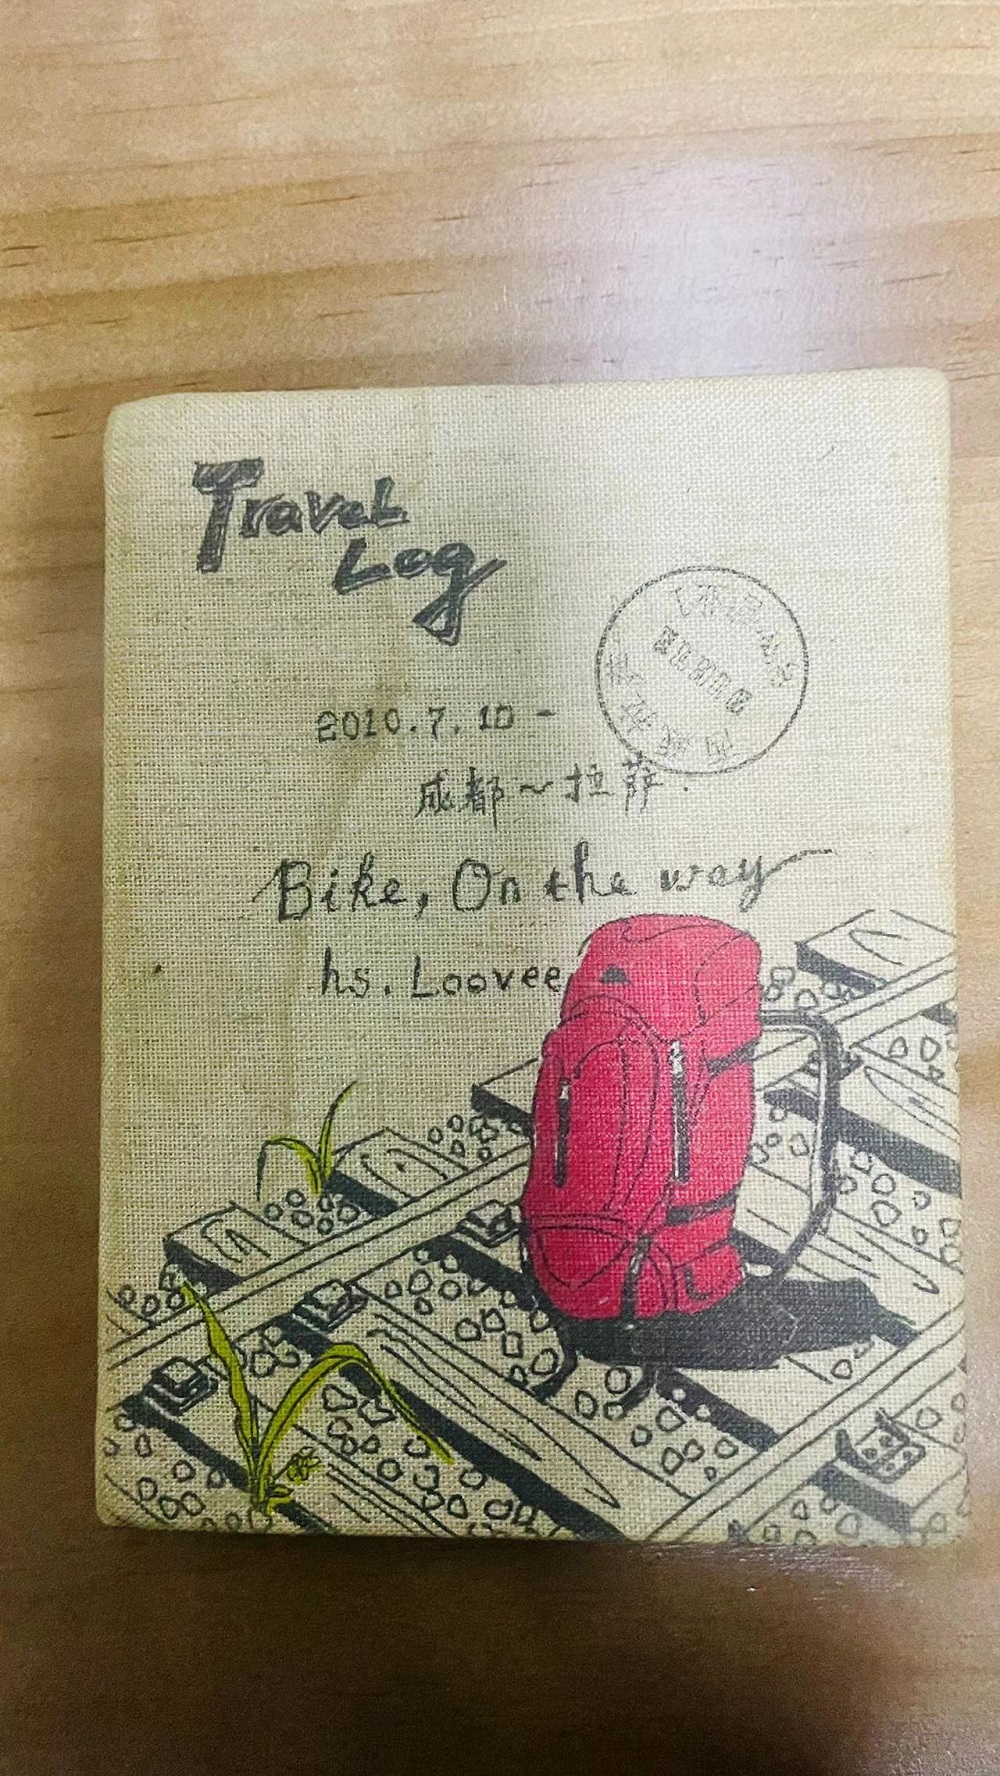 Travel
Log
2010.7.10 -
成都～拉萨.
Bike, On the way
hs. Loovee